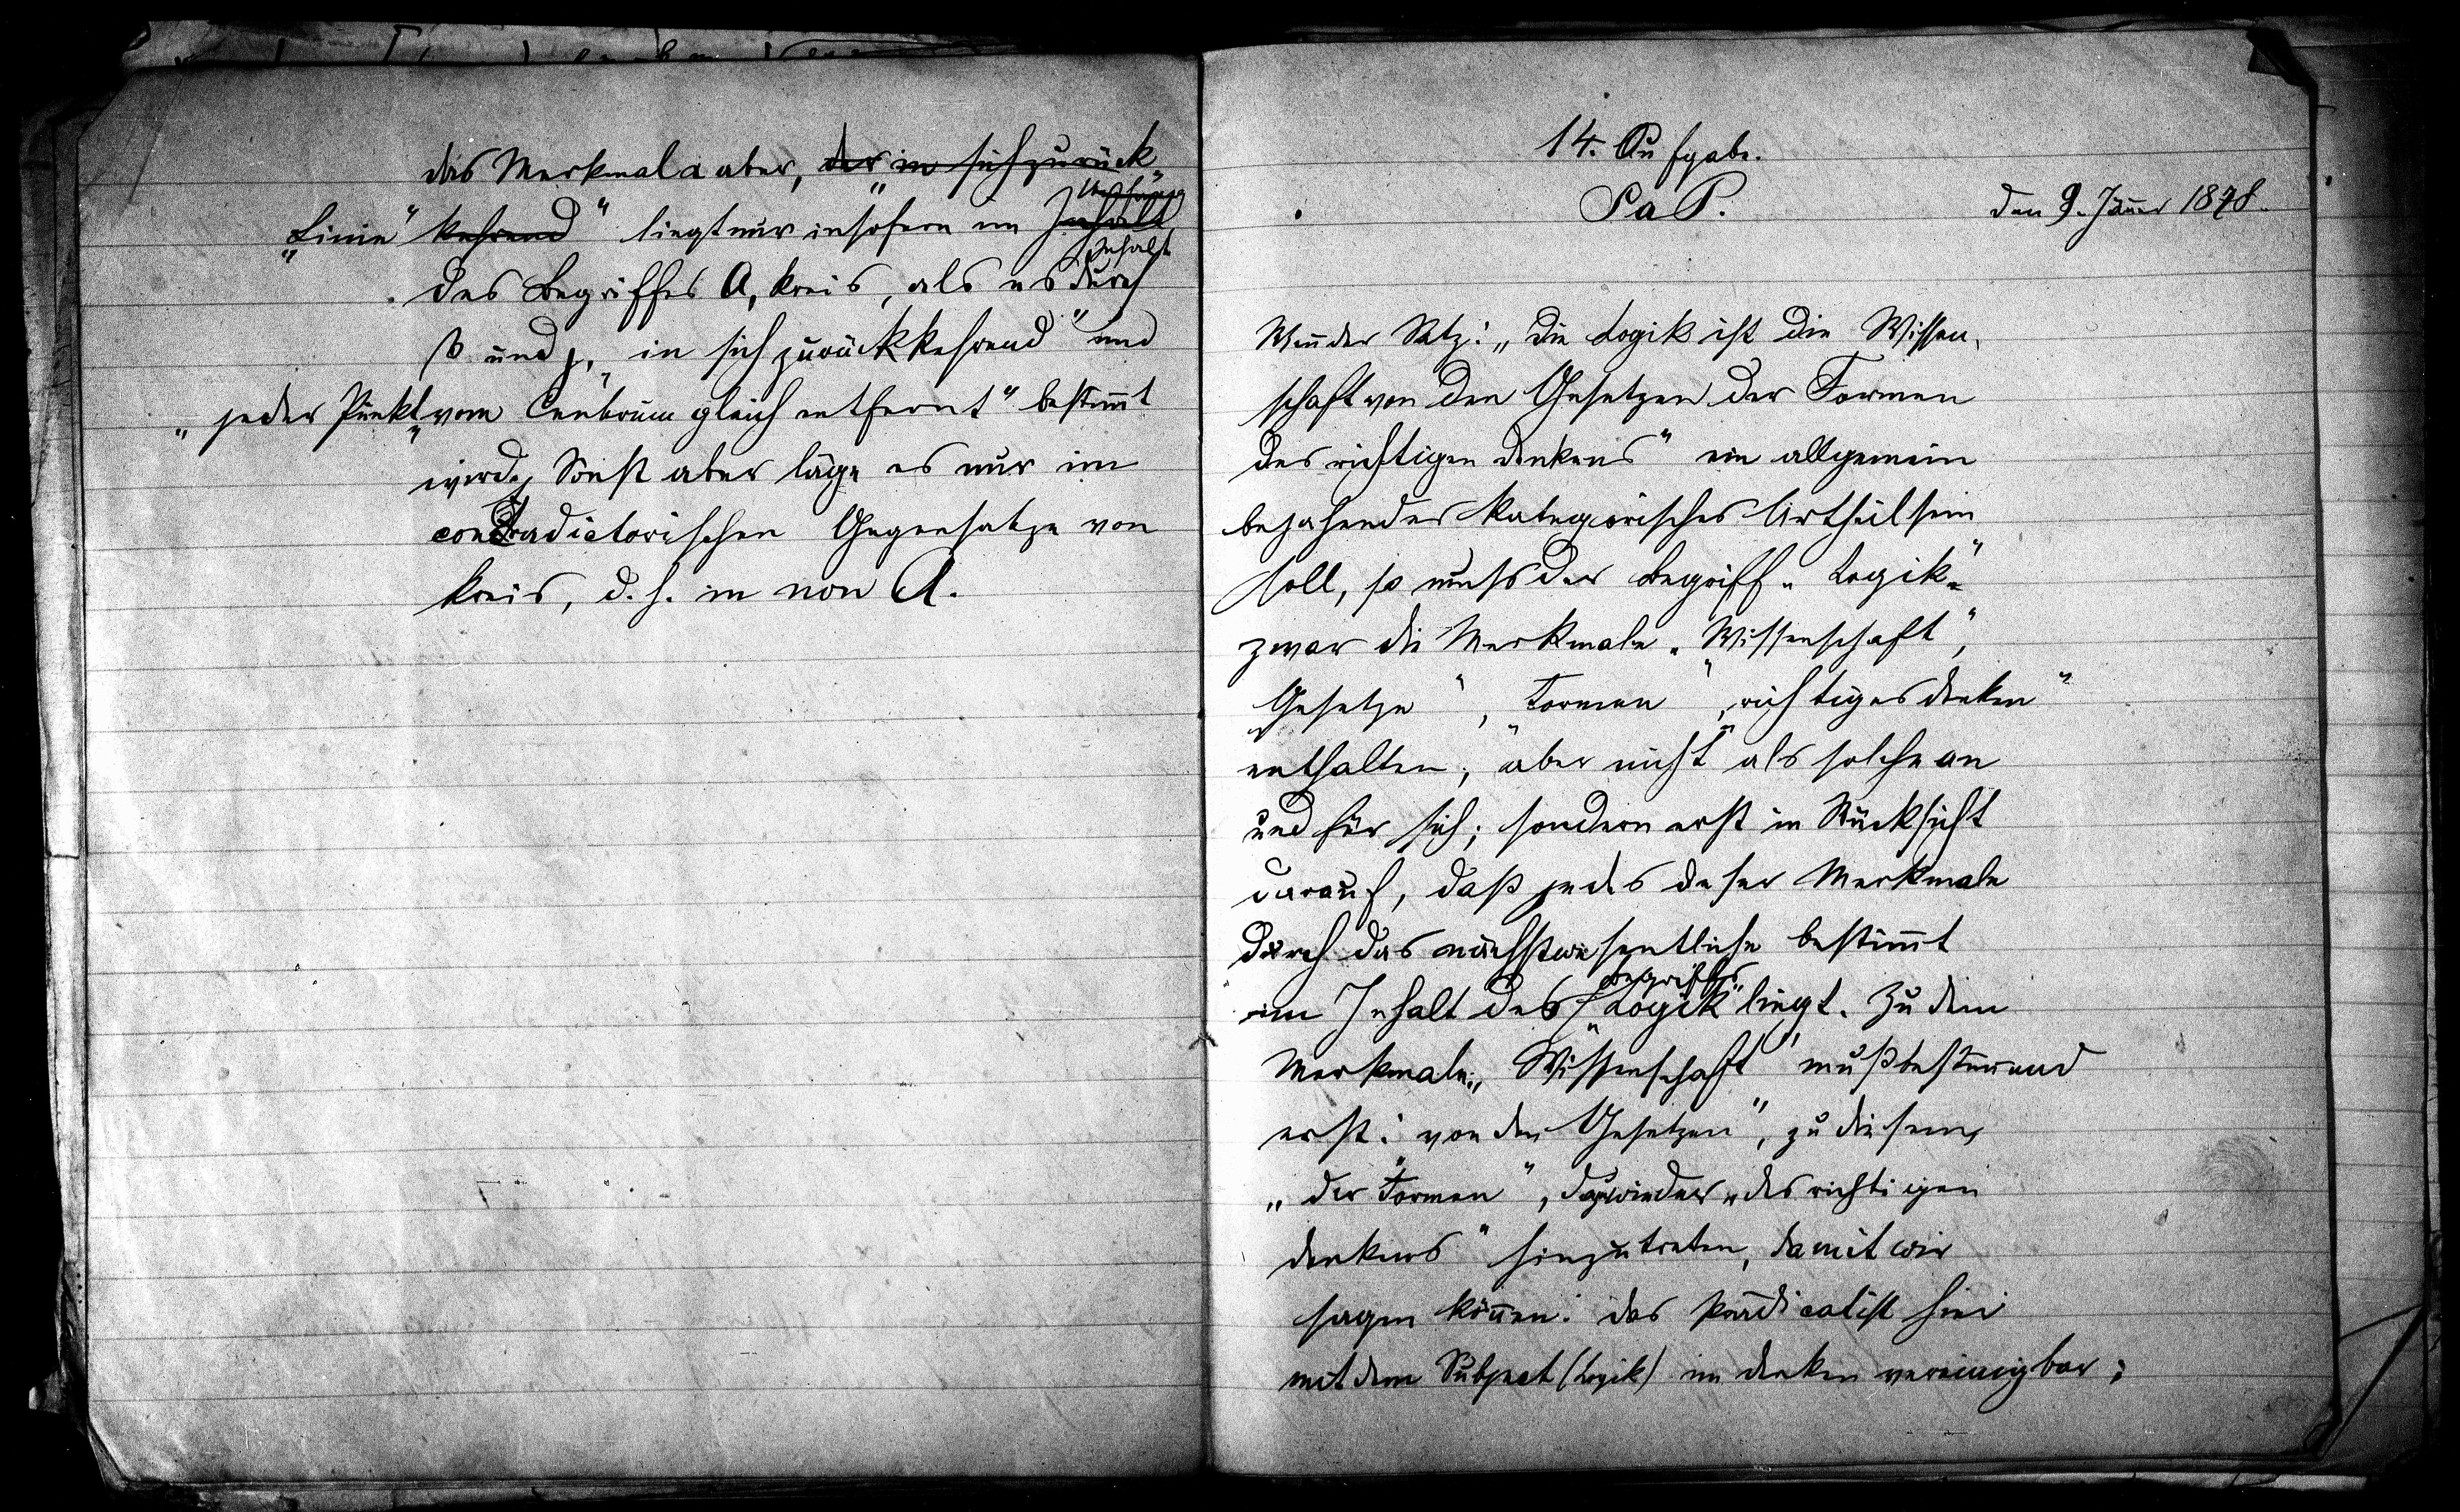 das Merkmal a aber, der „in sich zurück
„Linie“ kehrend“ liegt nur insofern im Inhalt
Inhalt
des Begriffes A, Kreis, als es durch
β und γ, „in sich zurückkehrend“ und
„jeder Punkt vom Centrum gleich entfernt“ bestimt
wird, Sonst aber läge es nur im
contradictorischen Gegensatze von
Kreis, d. h. in non A.
14. Aufgabe.
SaP.
den 9. Jäner 1878.
Wen der Satz: „Die Logik ist die Wissen-
schaft von den Gesetzen der Formen
des richtigen Denkens“ ein allgemein
bejahendes kategorisches Urtheil sein
soll, so muss der Begriff „Logik“
zwar die Merkmale „Wissenschaft“,
„Gesetze“, „Formen“, „richtiges Denken“
enthalten; aber nicht als solche an
und für sich; sondern erst in Rücksicht
darauf, daß jedes dieser Merkmale
durch das nächstwesentliche bestimt
Begriffes
im Inhalt des „Logik“ liegt. Zu dem
Merkmale: „Wissenschaft“ muß bestimend
erst: „von den Gesetzen“, zu diesem,
„der Formen“, dazu wieder „des richtigen
Denkens“ hinzutreten, damit wir
sagen könen: das Prädicat ist hier
mit dem Subject (Logik) im Denken vereinigbar;